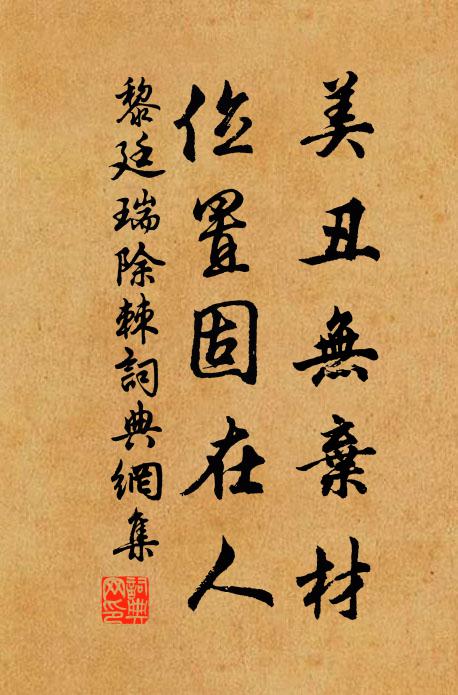 美丑無棄材
位置固在人
黎廷瑞除棘詞典網集
詞典
网印